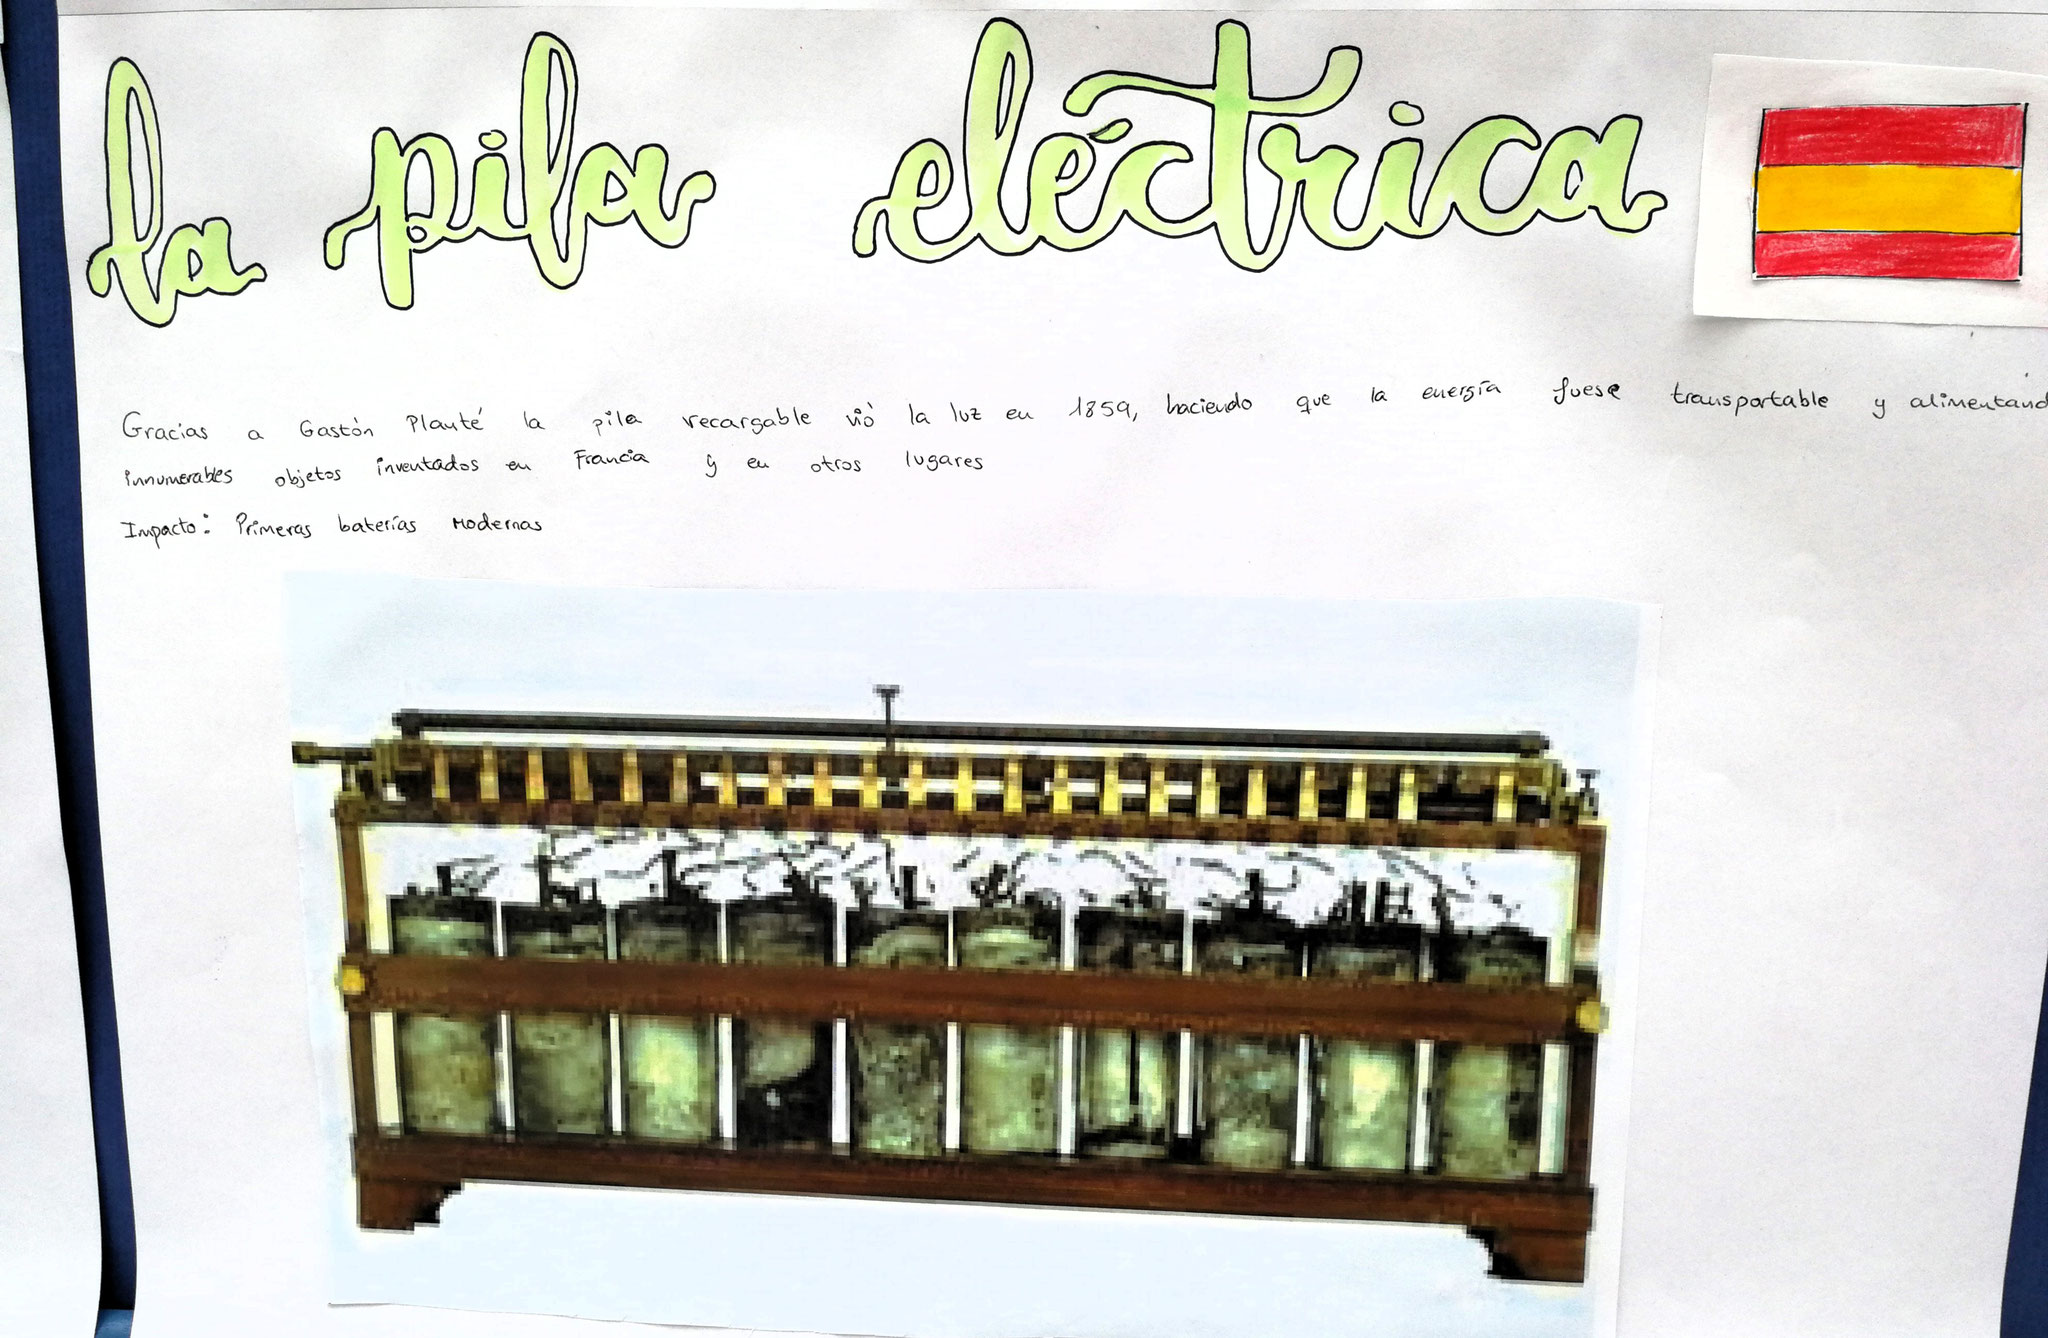 la pila eléctrica
Gracias a Gastón Planté la pila recargable vió la luz en 1859, haciendo que la energía fuese transportable y alimentand
innumerables objetos inventados en Francia y en otros lugares
Impacto: Primeras baterías Modernas